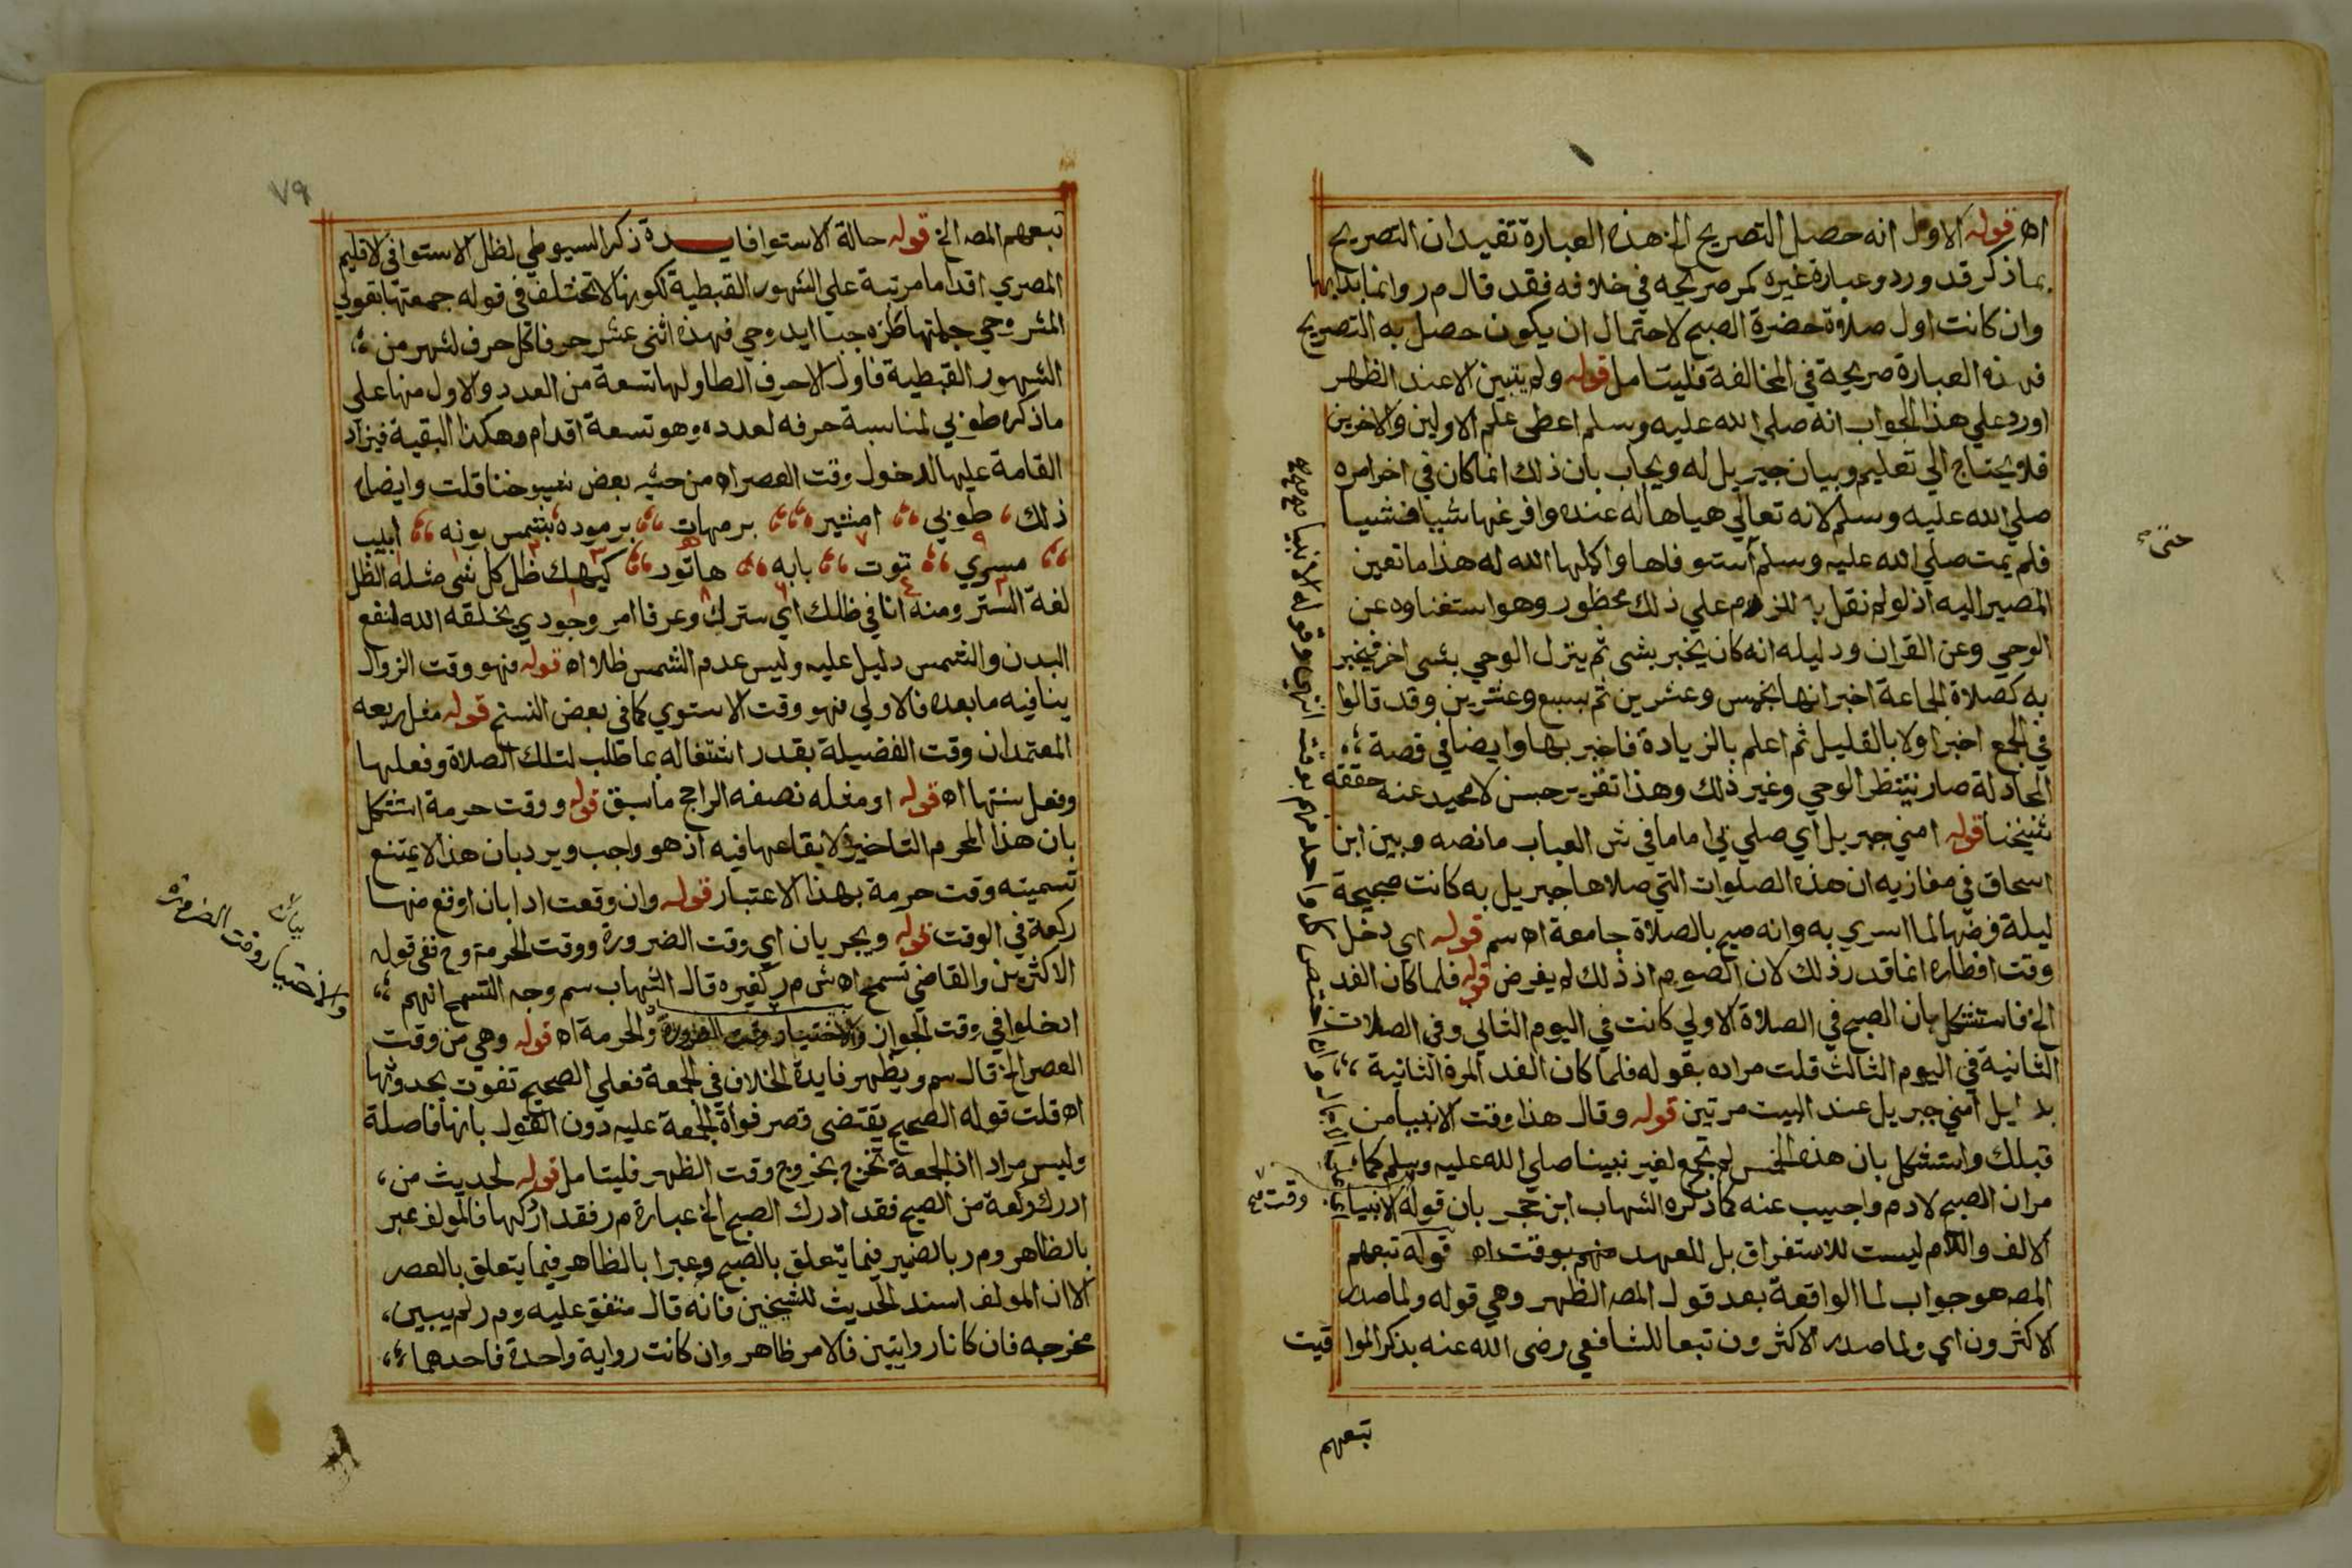 اه قوله الاول انه حصل التصريح الخ هذه العبارة تفيد ان التصريح
بماذكر قد ورد وعبارة غيره كمر صريحه في خلافه فقد قال م ر وانما بدابها
وان كانت اول صلاة حضرة الصبح لاحتمال ان يكون حصل به التصريح
فهذه العبارة صريحة في المخالفة فليتامل قوله ولم يتبين الا عند الظهر
اورد علي هذا الجواب انه صلي الله عليه وسلم اعطى علم الاولين والاخرين
فلا يحتاج الي تعليم وبيان جبريل له ويجاب بان ذلك انما كان في اخر امره
صلي الله عليه وسلم لانه تعالي هياها له عنده وافرغها شيبا فشيبا
فلم يمت صلي الله عليه وسلم استوفاها واكلها الله له هذا ما تعين
المصير اليه اذ لو لم نقل به للزم علي ذلك محظور وهو استغناوه عن
الوحي وعن القران ودليله انه كان يخبر بشى ثم ينزل الوحي بشى اخر فيخبر
به كصلاة الجاعة اخبر انها بخمس وعشرين ثم بسبع وعشرين وقد قالوا
في الجمع اخبر اولا بالقليل ثم اعلم بالزيادة فاخبر بها وايضا في قصة
المجادلة صار ينتظر الوحي وغير ذلك وهذا تقرير حسن لا محيد عنه حققه
شيخنا قوله امني جبريل اي صلي بي اماما في ش العباب ما نصه وبين ابن
اسحاق في مغازيه ان هذه الصلوات التي صلاها جبريل به كانت صبيحة
ليلة فرضها لما اسري به وانه صيح بالصلاة جامعة اه سم قوله اي دخل
وقت افطاره انما قدر ذلك لان الصوم اذ ذلك لم يفرض قوله فلما كان الغد
الخ فاستشكل بان الصبح في الصلاة الاولي كانت في اليوم الثاني وفي الصلات
الثانية في اليوم الثالث قلت مراده بقوله فلما كان الغد المرة الثانية
بدليل امني جبريل عند البيت مرتين قوله وقال هذا وقت الانبيا من
قبلك واستشكل بان هذه الخمس لم تجمع لغير نبينا صلي الله عليه وسلم كما
مر ان الصبح لادم واجيب عنه كما ذكره الشهاب ابن حجر بان قوله الانبيا
الالف واللام ليست للاستغراق بل للعهد منهم بوقت اه قوله تبعهم
المصه هو جواب لما الواقعة بعد قول المصه الظهر وهي قوله ولما صدر
الاكثرون اي ولما صدر الاكثرون تبعا للشافعي رضى الله عنه بذكر المواقيت
تبعهم
حتى
وقت صح
٧٩
تبعهم المصه الخ قوله حالة الاستوا فايدة ذكر السيوطي لظل الاستوا في الاقليم
المصري اقداما مرتبة علي الشهور القبطية لكونها لا تختلف في قوله جمعتها بقولي
المشروحي جملتها طزه جبا ابدوحي فهذه اثنى عشر حرفا كل حرف لشهر من
الشهور القبطية فاول الاحرف الطا ولها تسعة من العدد والاول منها علي
ماذكره طوبي لمناسبة حرفه لعدده وهو تسعة اقدام وهكذا البقية فيزاد
القامة عليها لدخول وقت العصر اه من حشيه بعض شيوخنا قلت وايضاه
ذلك طوبي امشير برمهات برموده بشمس بونه ابيب
٩ ٧ ٥ ٣ ٢ ١
مسري توت بابه هاتور كيهك ظل كل شى مثله الظل
٢ ٤ ٦ ٨ ١
لغة الستر ومنه انا في ظلك اي سترك وعرفا امر وجودي يخلقه الله لنفع
البدن والشمس دليل عليه وليس عدم الشمس ظلا اه قوله فهو وقت الزوال
ينافيه ما بعده فالاولي فهو وقت الاستوي كما في بعض النسخ قوله مثل ربعه
المعتمد ان وقت الفضيلة بقدر اشتغاله بما طلب لتلك الصلاة وفعلها
وفعل سنتها اه قوله او مثله نصفه الراجح ما سبق قوله ووقت حرمة استشكل
بان هذا المحرم التاخير لا يقاعها فيه اذ هو واجب ويرد بان هذا لا يمتنع
تسميته وقت حرمة بهذا الاعتبار قوله وان وقعت ادا بان اوقع منها
ركعة في الوقت قوله ويجريان اي وقت الضرورة ووقت الحرمة وح ففي قوله
الاكثرين والقاضي تسمح اه ش م ر كغيره قال الشهاب سم وجه التسمح انهم
ادخلوا في وقت الجواز والاختيار وقت الضرورة والحرمة اه قوله وهي من وقت
العصر الخ قال سم ويظهر فايدة الخلاف في الجمعة فعلي الصحيح تفوت بحدوثها
اه قلت قوله الصحيح يقتضى قصر فواة الجمعة عليه دون القول بانها فاصلة
وليس مرادا اذ الجمعة تخرج بخروج وقت الظهر فليتامل قوله لحديث من
ادرك ركعة من الصبح فقد ادرك الصبح الخ عبارة م ر فقد ادركها فالمولف عبر
بالظاهر وم ر بالضمير فيما يتعلق بالصبح وعبرا بالظاهر فيما يتعلق بالعصر
الا ان المولف اسند الحديث للشيخين فانه قال متفق عليه وم ر لم يبين
مخرجه فان كانا روايتين فالامر ظاهر وان كانت رواية واحدة فاحدهما
بيان
والاختيار وقت الضرورة